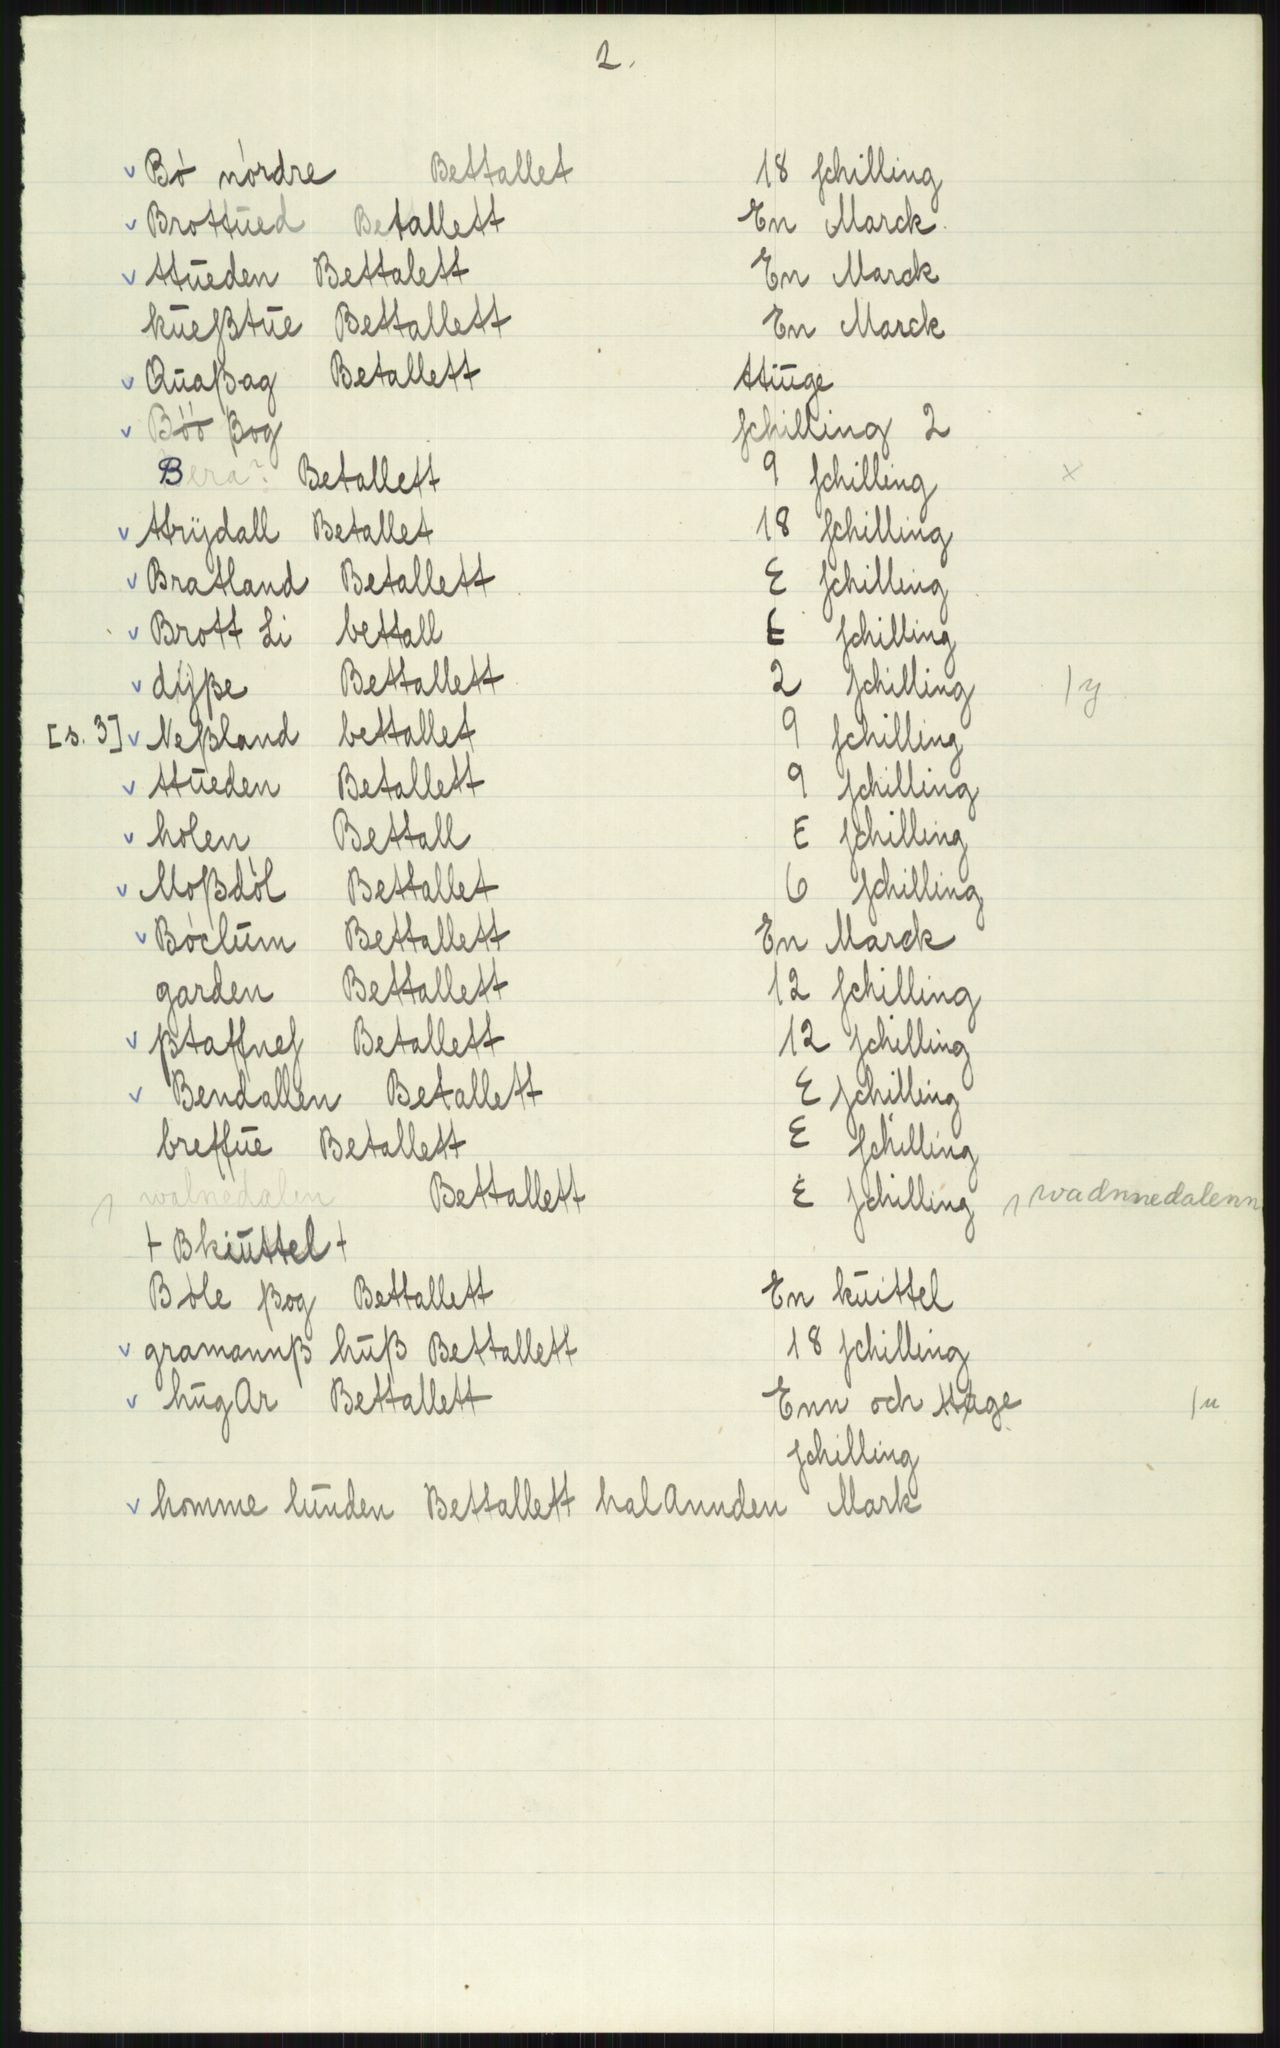 2.
v Bó nórdre Bettallet 18 schilling
v Brottūed Betallett En Marck
v ttūeden Bettalett En Marck
kūeßtūe Bettallett En Marck
v Qūaßag Betallett ttiūge
v Böó ßog schilling 2
Bera? Betallett 9 schilling x
v ttrÿdall Betallet 18 schilling
v Bratland Betallett E schilling
v Brott Li bettall E schilling
v dÿße Bettallett 2 schilling /y
[s. 3] v Neßland bettallet 9 schilling
v ttūeden Betallett 9 schilling
v holen Bettall E schilling
v Moßdól Bettallet 6 schilling
v Bóclūm Bettallett En Marck
garden Bettallett 12 schilling
v ßtaffnes Betallett 12 schilling
v Bendallen Betallett E schilling
breffūe Betallett E schilling
walnedalen Bettallett E schilling wadnnedalenn
+ Bkiūttel +
Bóle ßog Bettallett En kūittel
v gramannß hūß Bettallett 18 schilling
v hūgAr Bettallett Enn och ttage /u
schilling
v homme lūnden Bettallett halAnnden Mark